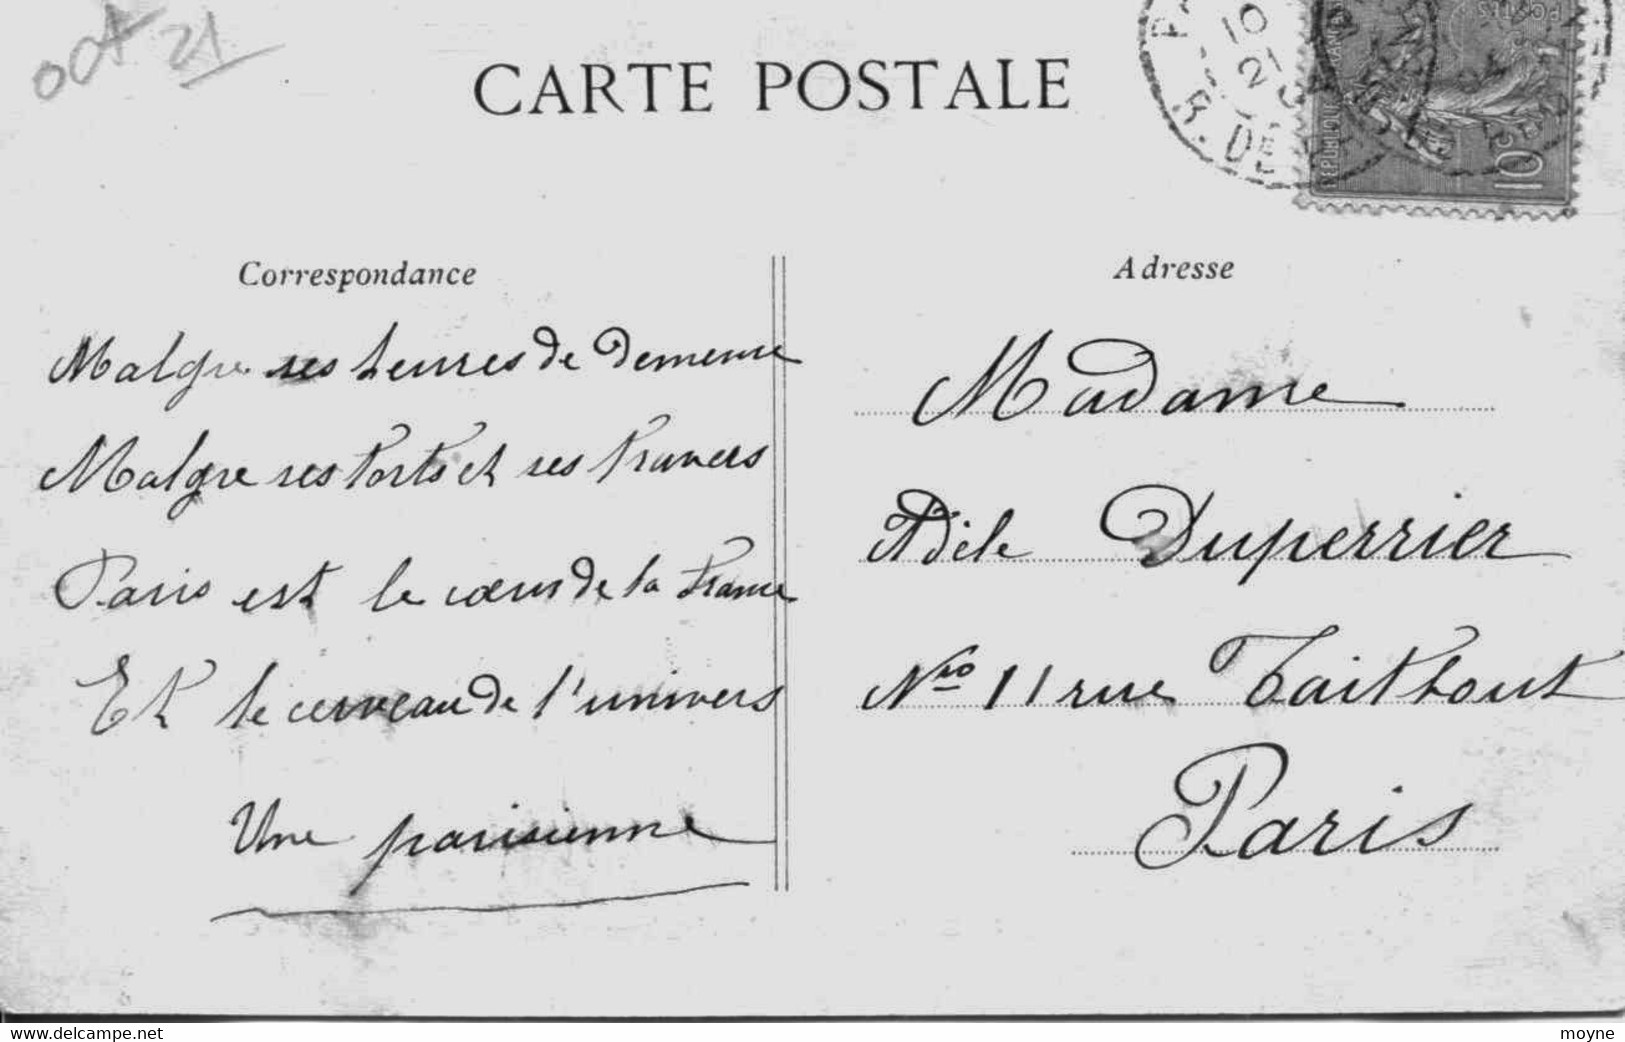 oct 21
CARTE POSTALE
10
21
R. DE
REPUBLIQUE
POSTES
10c
Correspondance
Malgre ses heures de Demence
Malgre ses torts et ses travers
Paris est le cœur de la France
Et le cerveau de l'univers
Une parisienne
Adresse
Madame
Adèle Duperrier
Nro 11 rue Taitbout
Paris
www.delcampe.net
moyne